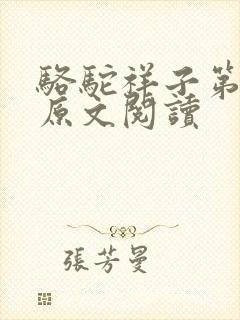 駱駝祥子第
原文閱讀
張芳曼